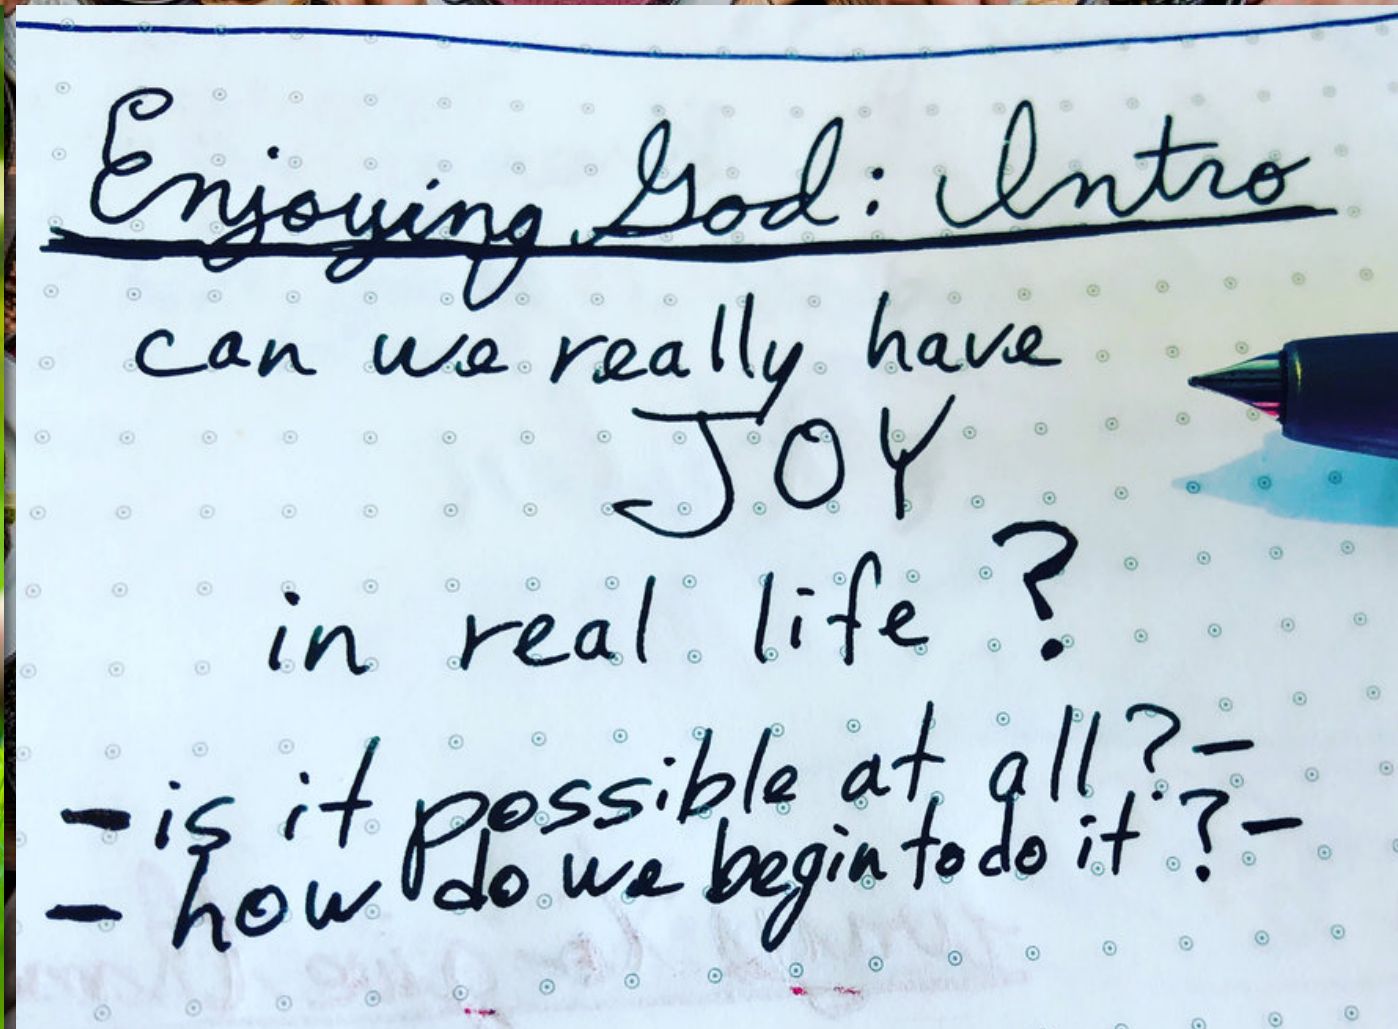 Enjoying God: Intro
can we really have
JOY
in real life?
- is it possible at all? -
- how do we begin to do it? -